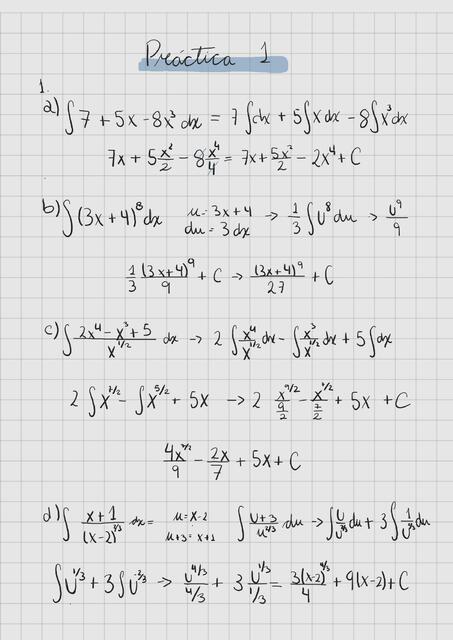 Práctica 1
1.
a) ∫ 7 + 5x - 8x³ dx = 7 ∫ dx + 5 ∫ x dx - 8 ∫ x³ dx
7x + 5 x²/2 - 8 x⁴/4 = 7x + 5x²/2 - 2x⁴ + C
b) ∫ (3x + 4)⁸ dx u = 3x + 4 du = 3 dx → 1/3 ∫ U⁸ du → U⁹/9
1/3 (3x + 4)⁹/9 + C → (3x + 4)⁹/27 + C
c) ∫ (2x⁴ - x³ + 5)/x^(1/2) dx → 2 ∫ x⁴/x^(1/2) dx - ∫ x³/x^(1/2) dx + 5 ∫ dx
2 ∫ x^(7/2) - ∫ x^(5/2) + 5x → 2 x^(9/2)/(9/2) - x^(7/2)/(7/2) + 5x + C
4x^(9/2)/9 - 2x/7 + 5x + C
d) ∫ (x + 1)/(x - 2)^(2/3) dx = u = x - 2 u + 3 = x + 1 ∫ (U + 3)/u^(2/3) du → ∫ U/U^(2/3) du + 3 ∫ 1/U^(2/3) du
∫ U^(1/3) + 3 ∫ U^(-2/3) → U^(4/3)/(4/3) + 3 U^(1/3)/(1/3) = 3(x-2)^(4/3)/4 + 9(x-2) + C